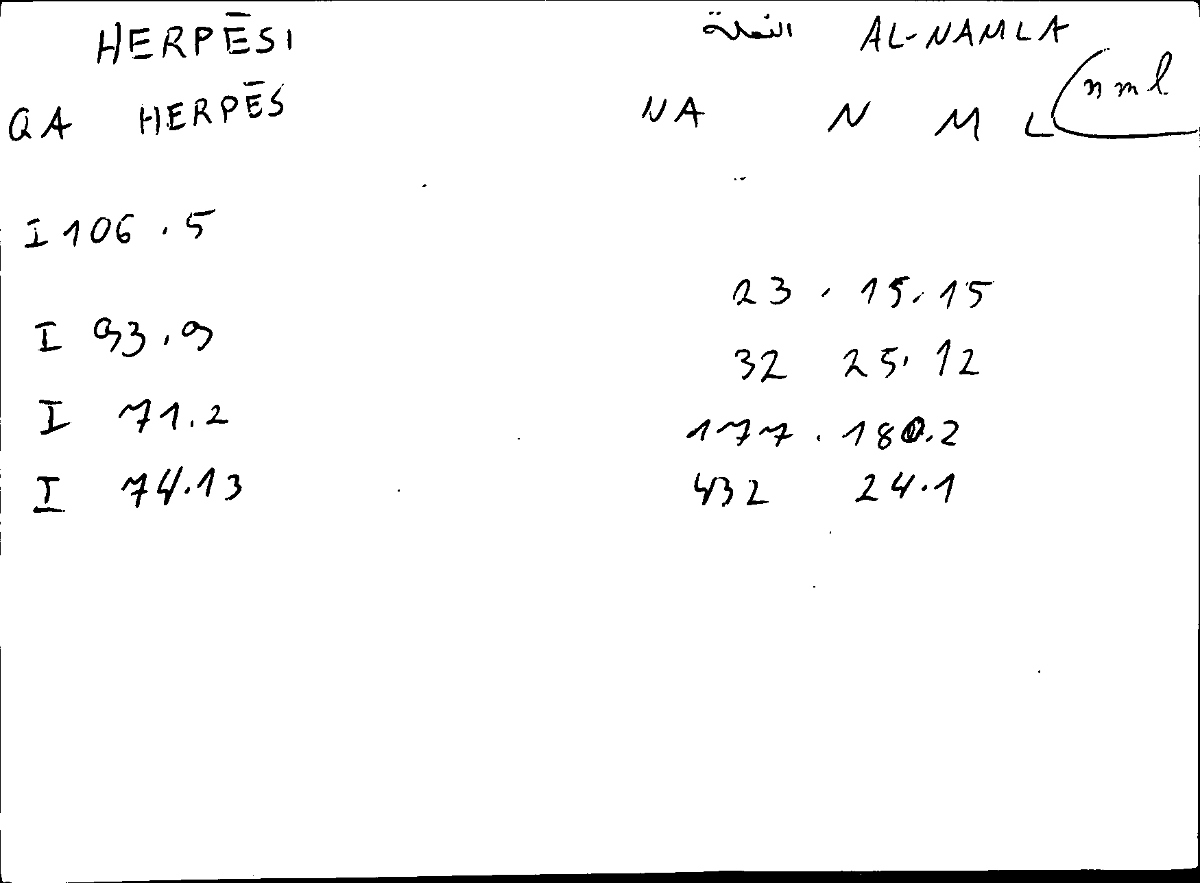 HERPĒSI النملة AL-NAMLA
QA HERPĒS NA N M L nml
I 106.5
23.15.15
I 93.9
32 25.12
I 71.2 177.180.2
I 74.13 432 24.1